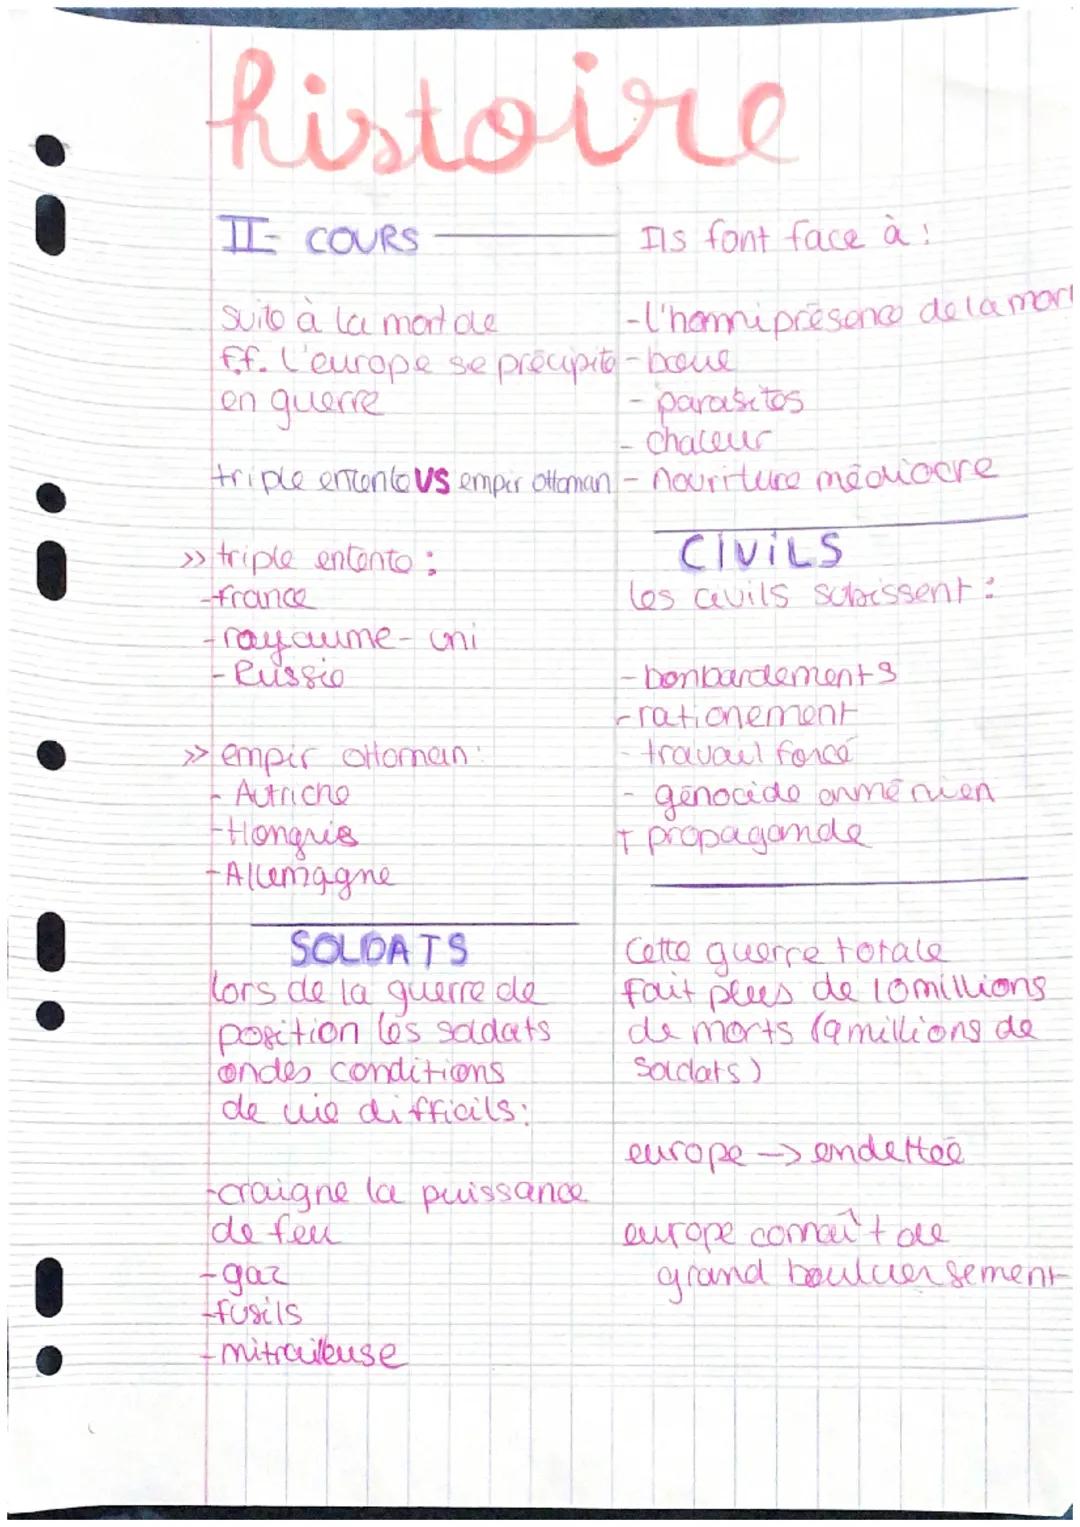 histoire
II- COURS
suite à la mort de
F.F. l'europe se précipite
en guerre
triple entente VS empir ottoman
>> triple entente :
-france
-royaume-uni
-Russie
>> empir ottoman :
- Autriche
-Hongrie
-Allemagne
SOLDATS
lors de la guerre de
position les soldats
ondes conditions
de vie difficils :
-craigne la puissance
de feu
-gaz
-fusils
-mitrailleuse
Ils font face à :
-l'homniprésence de la mort
-boue
- parasites
- chaleur
- nourriture médiocre
CIVILS
les civils subissent :
-bonbardements
-rationement
- travail forcé
- génocide arménien
+ propagande
Cette guerre totale
fait plus de 10 millions
de morts (9 millions de
soldats)
europe -> endettée
europe connaît de
grand boulversement